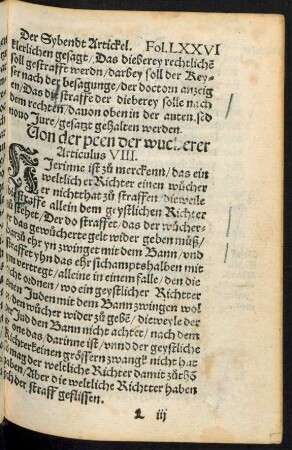 Der Sybendt Artickel. Fol. LXXVI
klerlichen gesagt/ Das dieberey rechtlichē
soll gestrafft werdn/ darbey soll der Rey-
ser nach der besagunge/ der doctorn anzeig
en/ Das die straffe der dieberey solle nach
dem rechten/ dauon oben in der auten. sed
nouo Jure/ gesatzt gehalten werden.
Von der peen der wucherer
Articulus VIII.
Hierinne ist zů merckenn/ das ein
weltlicher Richter einen wůcher
er nicht hat zu straffen/ dieweile
straffe allein dem geystlichen Richter
zůstehet/ Der do straffet/ das der wůcher-
er das gewůcherte gelt wider geben můß/
darzů ehr yn zwinget mit dem Bann/ vnd
straffet yhn das ehr sich amptshalben mit
vertregt/ alleine in einem falle/ den die
recht ordnen/ wo ein geystlicher Richtter
einen Juden mit dem Bann zwingen wol
den wůcher wider zu gebē/ dieweyle der
Jud den Bann nicht achtet/ nach dem
er one das/ darinne ist/ vnnd der geystliche
Richter keinen grössern zwangk nicht hat
mag der weltliche Richter damit zůthů
haben/ Aber die weltliche Richtter haben
sich der straff geflissen.
L iij